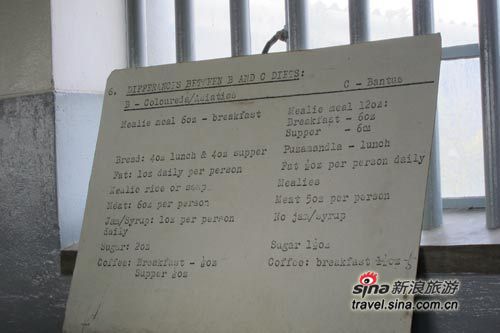 6. DIFFERENCES BETWEEN B AND C DIETS:
B - Coloureds/Asiatics
C - Bantus
Mealie meal 6oz - breakfast
Mealie meal 12oz:
Breakfast - 6oz
Supper - 6oz
Bread: 4oz lunch & 4oz supper
Puzamandla - lunch
Fat: 1oz daily per person
Fat ½oz per person daily
Mealie rice or samp
Mealies
Meat: 6oz per person
Meat 5oz per person
Jam/Syrup: 1oz per person
daily
No jam/syrup
Sugar: 2oz
Sugar 1½oz
Coffee: Breakfast - ½oz
Supper ½oz
Coffee: breakfast
sina新浪旅游
travel.sina.com.cn